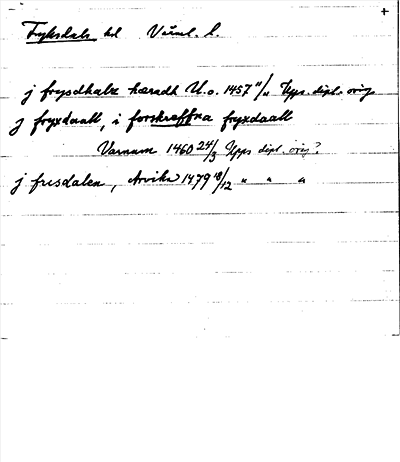 Fryksdals hd Värml. l.
j frysdhals hæradh U.o. 1457 11/11 Upps. dipl. orig
j fryxdaall, i forskreffna fryxdaall
Varnum 1460 24/3 Upps dipl. orig?
j frisdalen, Arvika 1479 18/12 " " "